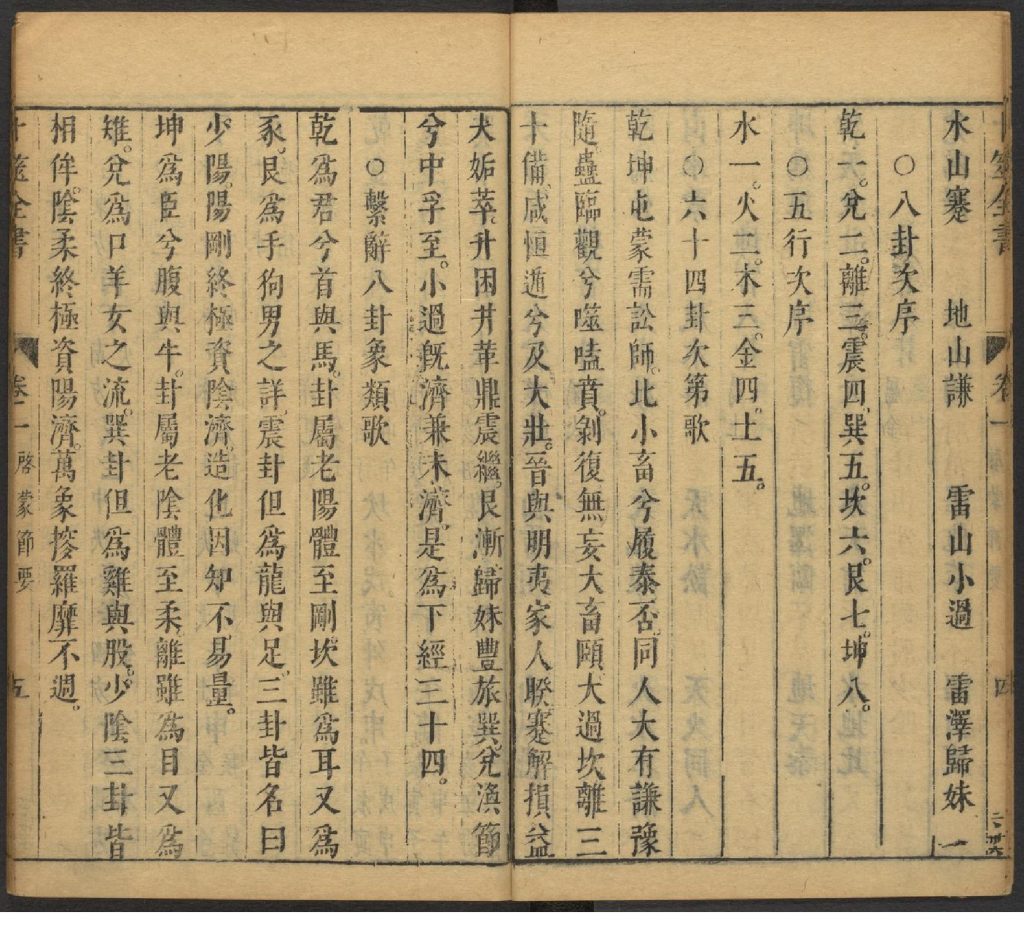 水山蹇 地山謙 雷山小過 雷澤歸妹
○八卦次序
乾一。兌二。離三。震四。巽五。坎六。艮七。坤八。
○五行次序
水一。火二。木三。金四。土五。
○六十四卦次第歌
乾坤屯蒙需訟師。比小畜兮履泰否。同人大有謙豫
隨。蠱臨觀兮噬嗑賁。剝復無妄大畜頤。大過坎離三
十備。咸恒遁兮及大壯。晉與明夷家人睽。蹇解損益
夬姤萃。升困井革鼎震繼。艮漸歸妹豐旅巽。兌渙節
兮中孚至。小過旣濟兼未濟。是爲下經三十四。
○繫辭八卦象類歌
乾爲君兮首與馬。卦屬老陽體至剛。坎雖爲耳又爲
豕。艮爲手狗男之詳。震卦但爲龍與足。三卦皆名曰
少陽。陽剛終極資陰濟。造化因知不易量。
坤爲臣兮腹與牛。卦屬老陰體至柔。離雖爲目又爲
雉。兌爲口羊女之流。巽卦但爲雞與股。少陰三卦皆
相侔。陰柔終極資陽濟。萬象摉羅靡不週。
卜筮全書 卷一 啓蒙節要 五